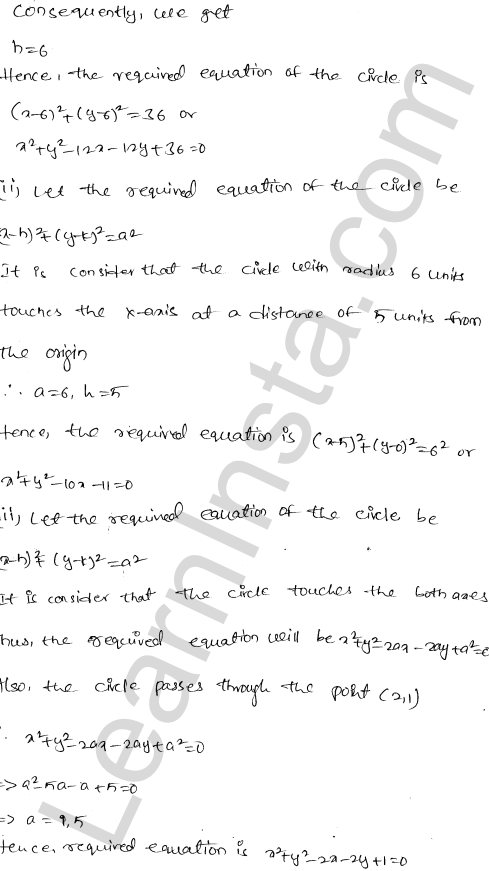 Consequently, we get
h=6
Hence, the required equation of the circle is
(x-6)²+(y-6)²=36 or
x²+y²-12x-12y+36=0
ii, Let the required equation of the circle be
(x-h)²+(y-k)²=a²
It is consider that the circle with radius 6 units
touches the x-axis at a distance of 5 units from
the origin
∴ a=6, h=5
Hence, the required equation is (x-5)²+(y-0)²=6² or
x²+y²-10x-11=0
ii, Let the required equation of the circle be
(x-h)²+(y-k)²=a²
It is consider that the circle touches the both axes
hus, the required equation will be x²+y²-2ax-2ay+a²=0
Also, the circle passes through the point (2,1)
∴ x²+y²-2ax-2ay+a²=0
=> a²-5a-a+5=0
=> a=1,5
Hence, required equation is x²+y²-2x-2y+1=0
LearnInsta.com